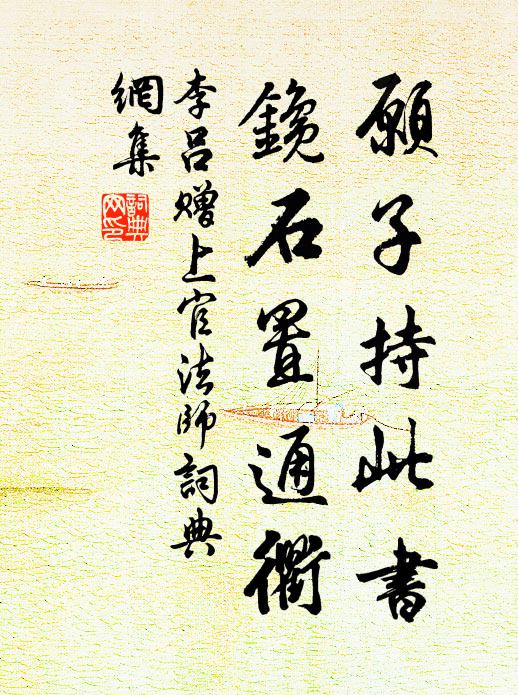 願子持此書
鑱石置通衢
李呂贈上官法師詞典
網集
詞典
网印